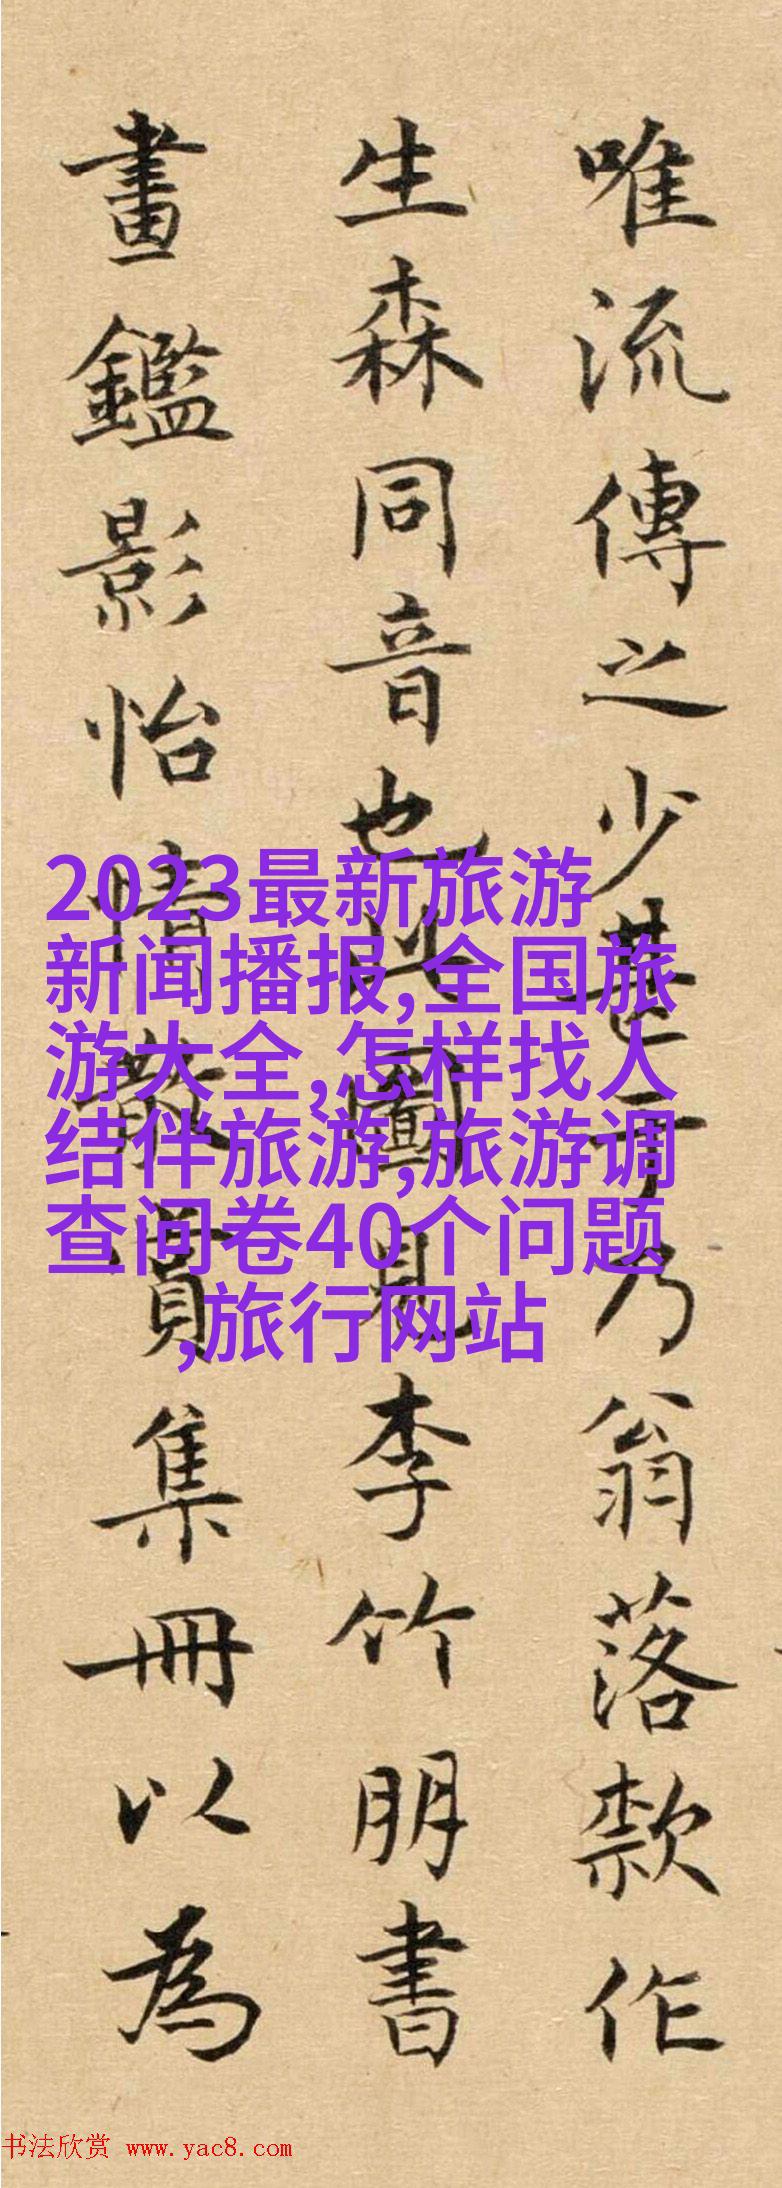 唯流傳之少甚于乃翁落款作
生森同音也此圖見李竹朋書
畫鑑影怡情集冊以為
2023最新旅游
新闻播报,全国旅
游大全,怎样找人
结伴旅游,旅游调
查问卷40个问题
,旅行网站
书法欣赏 www.yac8.com